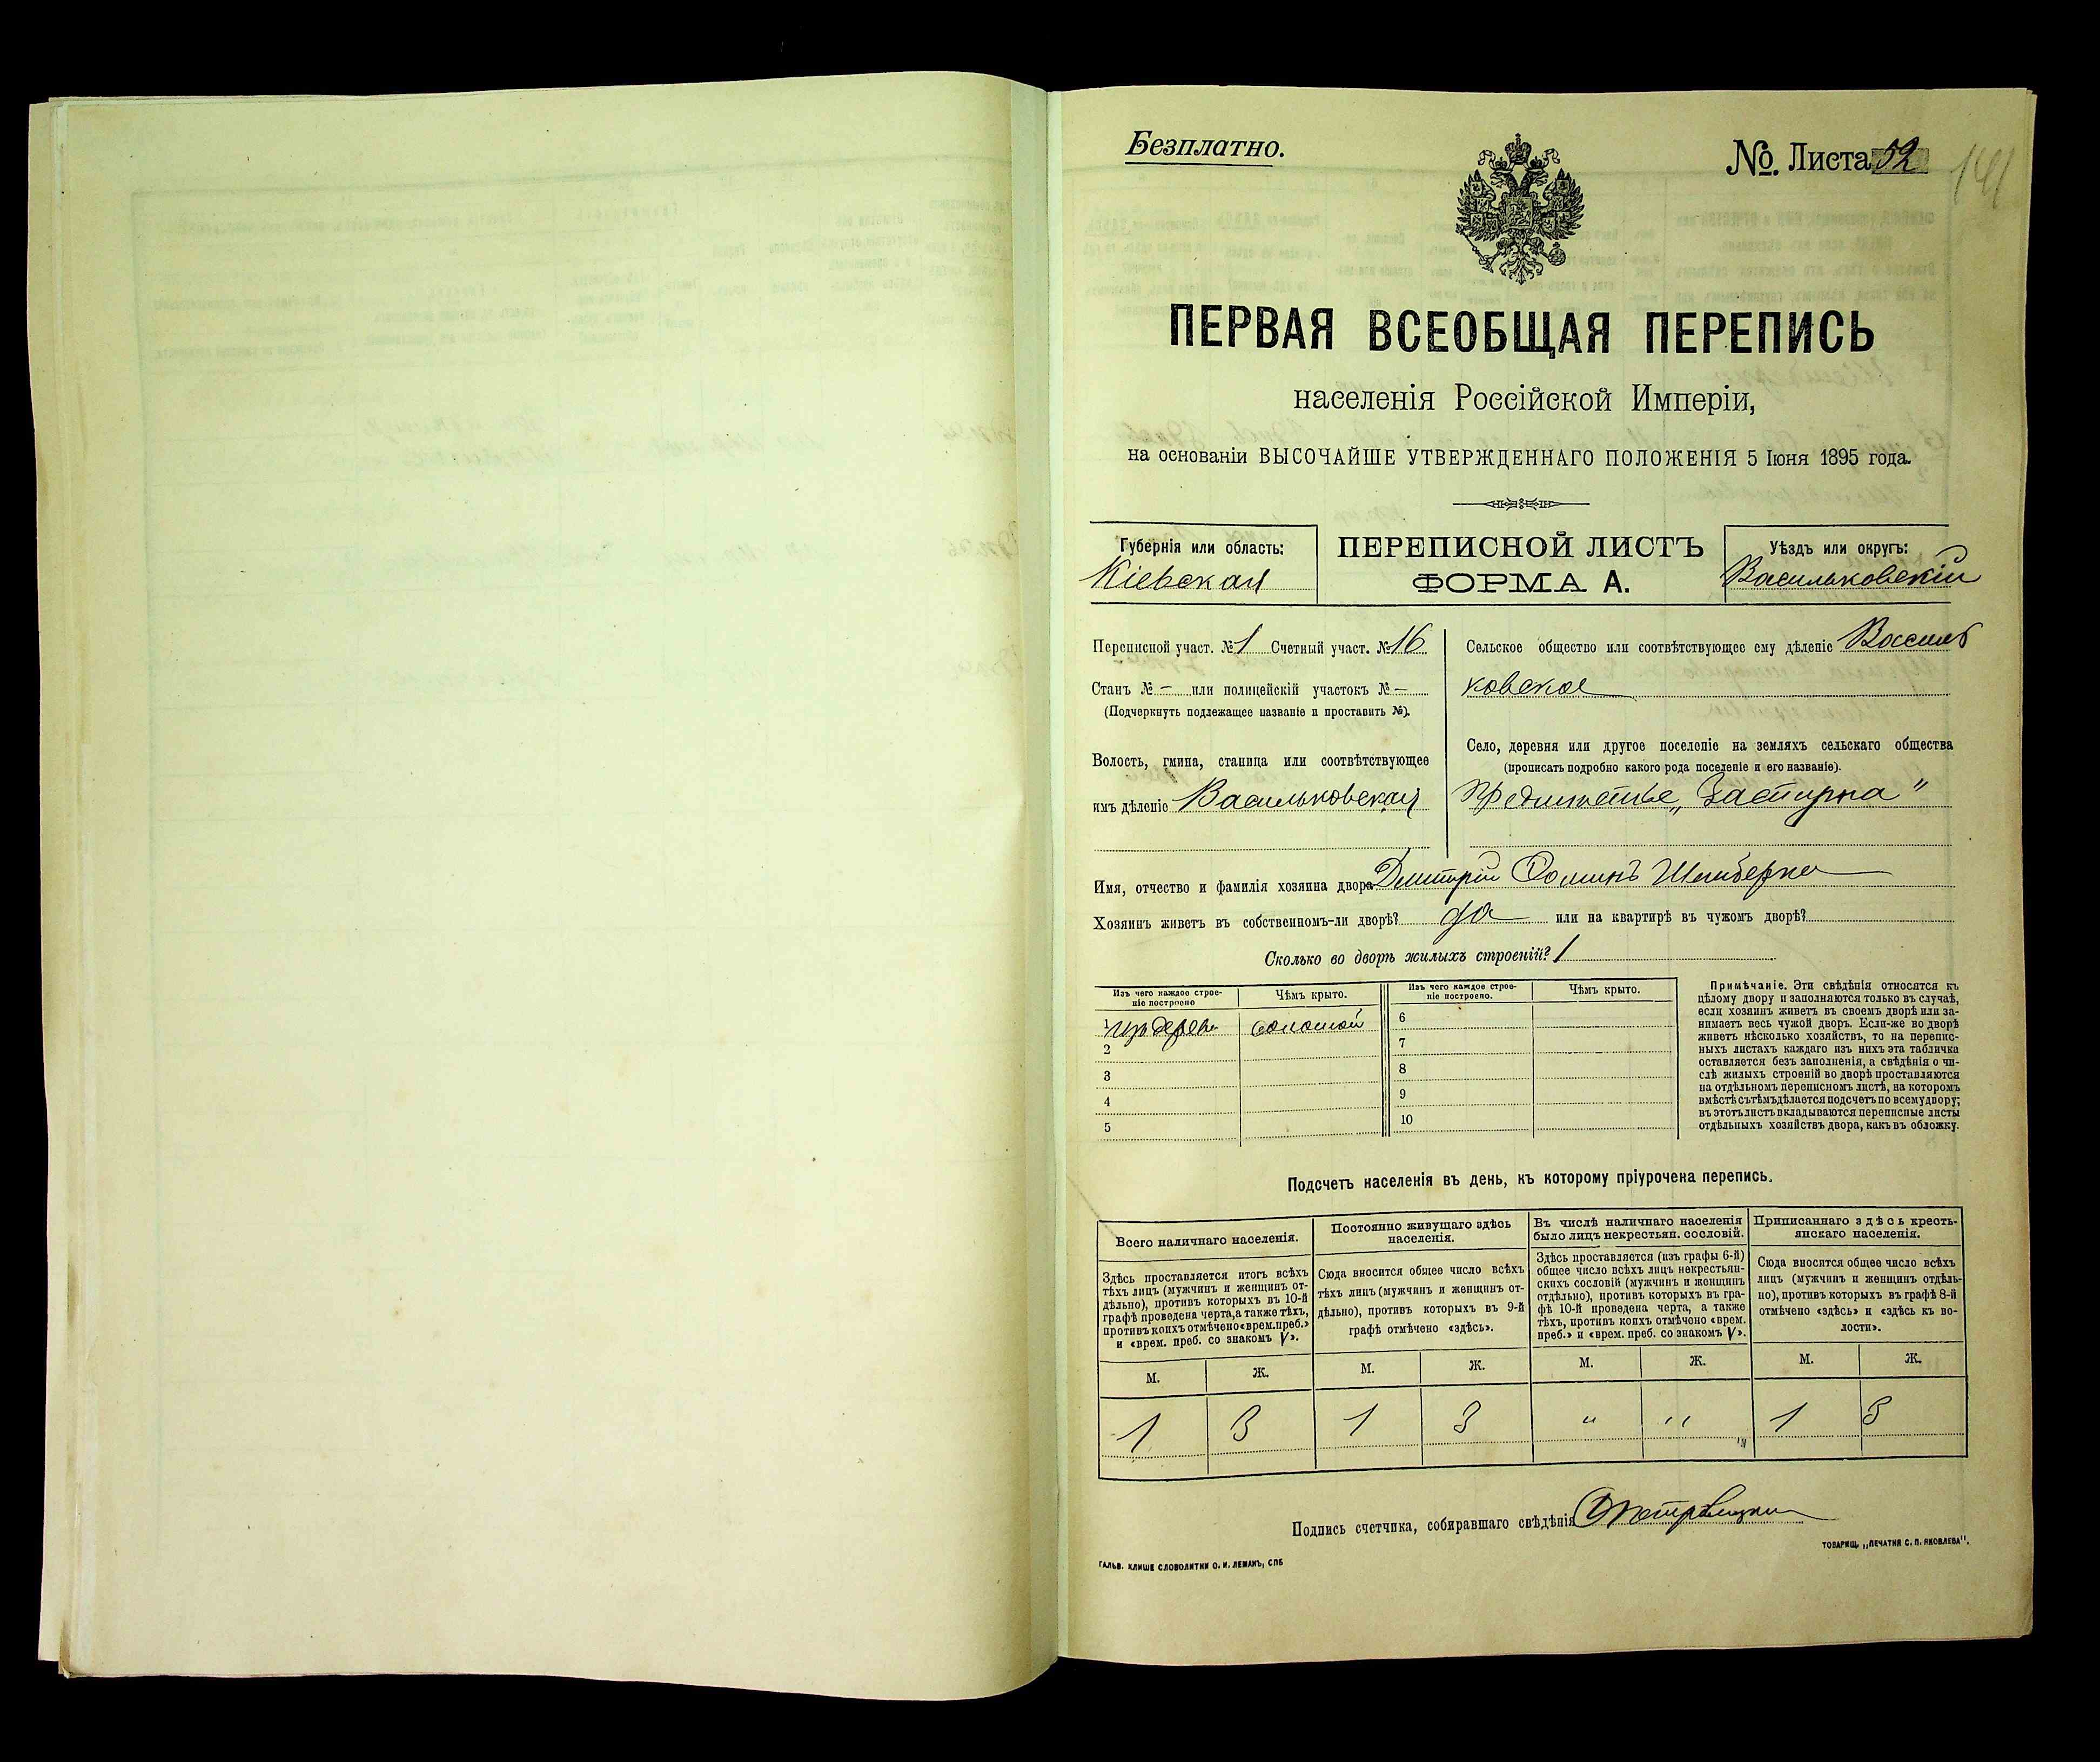 Безплатно.
№. Листа 52
141
ПЕРВАЯ ВСЕОБЩАЯ ПЕРЕПИСЬ
населенія Россійской Имперіи,
на основаніи ВЫСОЧАЙШЕ УТВЕРЖДЕННАГО ПОЛОЖЕНІЯ 5 Іюня 1895 года.
Губернія или область:
Кіевская
ПЕРЕПИСНОЙ ЛИСТЪ
ФОРМА А.
Уѣздъ или округъ:
Васильковскій
Переписной участ. № 1 Счетный участ. № 16
Станъ № — или полицейскій участокъ № —
(Подчеркнуть подлежащее названіе и проставить №).
Волость, гмина, станица или соотвѣтствующее
имъ дѣленіе Васильковская
Сельское общество или соотвѣтствующее ему дѣленіе Василь
ковское
Село, деревня или другое поселеніе на земляхъ сельскаго общества
(прописать подробно какого рода поселеніе и его названіе).
Предмѣстье „Застугна"
Имя, отчество и фамилія хозяина двора Дмитрій Фоминъ
Хозяинъ живетъ въ собственномъ-ли дворѣ? да или на квартирѣ въ чужомъ дворѣ?
Сколько во дворѣ жилыхъ строеній? 1
Изъ чего каждое строе-
ніе построено
Чѣмъ крыто.
1 изъ дерева соломой
2
3
4
5
Изъ чего каждое строе-
ніе построено.
Чѣмъ крыто.
6
7
8
9
10
Примѣчаніе. Эти свѣдѣнія относятся къ
цѣлому двору и заполняются только въ случаѣ,
если хозяинъ живетъ въ своемъ дворѣ или за-
нимаетъ весь чужой дворъ. Если-же во дворѣ
живетъ нѣсколько хозяйствъ, то на перепис-
ныхъ листахъ каждаго изъ нихъ эта табличка
оставляется безъ заполненія, а свѣдѣнія о чи-
слѣ жилыхъ строеній во дворѣ проставляются
на отдѣльномъ переписномъ листѣ, на которомъ
вмѣстѣ съ тѣмъ дѣлается подсчетъ по всему двору;
въ этотъ листъ вкладываются переписные листы
отдѣльныхъ хозяйствъ двора, какъ въ обложку.
Подсчетъ населенія въ день, къ которому пріурочена перепись.
Всего наличнаго населенія.
Здѣсь проставляется итогъ всѣхъ
тѣхъ лицъ (мужчинъ и женщинъ от-
дѣльно), противъ которыхъ въ 10-й
графѣ проведена черта, а также тѣхъ,
противъ коихъ отмѣчено «врем. преб.»
и «врем. преб. со знакомъ V».
Постоянно живущаго здѣсь
населенія.
Сюда вносится общее число всѣхъ
тѣхъ лицъ (мужчинъ и женщинъ от-
дѣльно), противъ которыхъ въ 9-й
графѣ отмѣчено «здѣсь».
Въ числѣ наличнаго населенія
было лицъ некрестьян. сословій.
Здѣсь проставляется (изъ графы 6-й)
общее число всѣхъ лицъ некрестьян-
скихъ сословій (мужчинъ и женщинъ
отдѣльно), противъ которыхъ въ гра-
фѣ 10-й проведена черта, а также
тѣхъ, противъ коихъ отмѣчено «врем.
преб.» и «врем. преб. со знакомъ V».
Приписаннаго здѣсь кресть-
янскаго населенія.
Сюда вносятся общее число всѣхъ
лицъ (мужчинъ и женщинъ отдѣль-
но), противъ которыхъ въ графѣ 8-й
отмѣчено «здѣсь» и «здѣсь къ во-
лости».
М. Ж. М. Ж. М. Ж. М. Ж.
1 3 1 3 " " 1 3
Подпись счетчика, собиравшаго свѣдѣнія
ГАЛЬВ. КЛИШЕ СЛОВОЛИТНИ О. И. ЛЕМАНЪ, СПБ
ТОВАРИЩ. „ПЕЧАТНЯ С. П. ЯКОВЛЕВА".